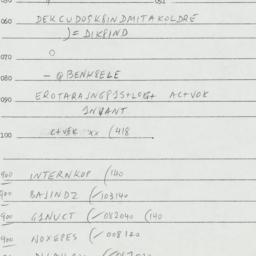 060 DEKCUDOSKBINDMITAKOLDRE
)= DIKPIND
070 O
080 - QBENHSELE
090 EROTARAJNEPJS+LOK+ ACTVOK
INVANT
100 K+VBK xx (418
900 INTERNKOP (140
900 BAJINDZ (✓103140
900 GJNUCT (✓082040 (140
900 NOXEPES (✓008140